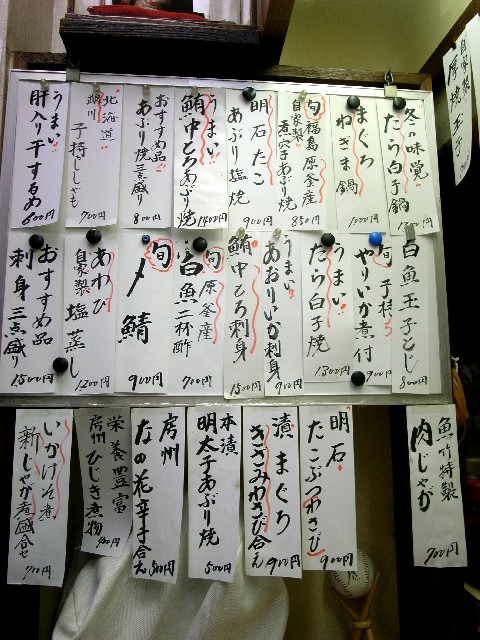 自家製
厚焼玉子
冬の味覚
たら白子鍋
まぐろ
ねぎま鍋
1000円
旬福島原釜産
自家製
煮穴子あぶり焼
850円
明石たこ
あぶり塩焼
900円
うまい
鮪中とろあぶり焼
1400円
おすすめ品
あぶり焼三点盛り
800円
北海道
子持ししゃも
700円
うまい
肝入り干するめ
600円
白魚玉子とじ
800円
旬子持ち
やりいか煮付
900円
うまい
たら白子焼
1300円
うまい
あおりいか刺身
900円
鮪中とろ刺身
1500円
旬原釜産
白魚二杯酢
700円
旬
〆鯖
900円
あわび
自家製塩蒸し
1200円
おすすめ品
刺身三点盛り
1500円
魚竹特製
肉じゃが
700円
明石
たこぶつわさび
900円
漬まぐろ
きざみわさび合え
900円
本漬
明太子あぶり焼
500円
房州
なの花辛子合え
500円
栄養豊富
房州ひじき煮物
いかげそ煮
新じゃが煮盛合せ
700円